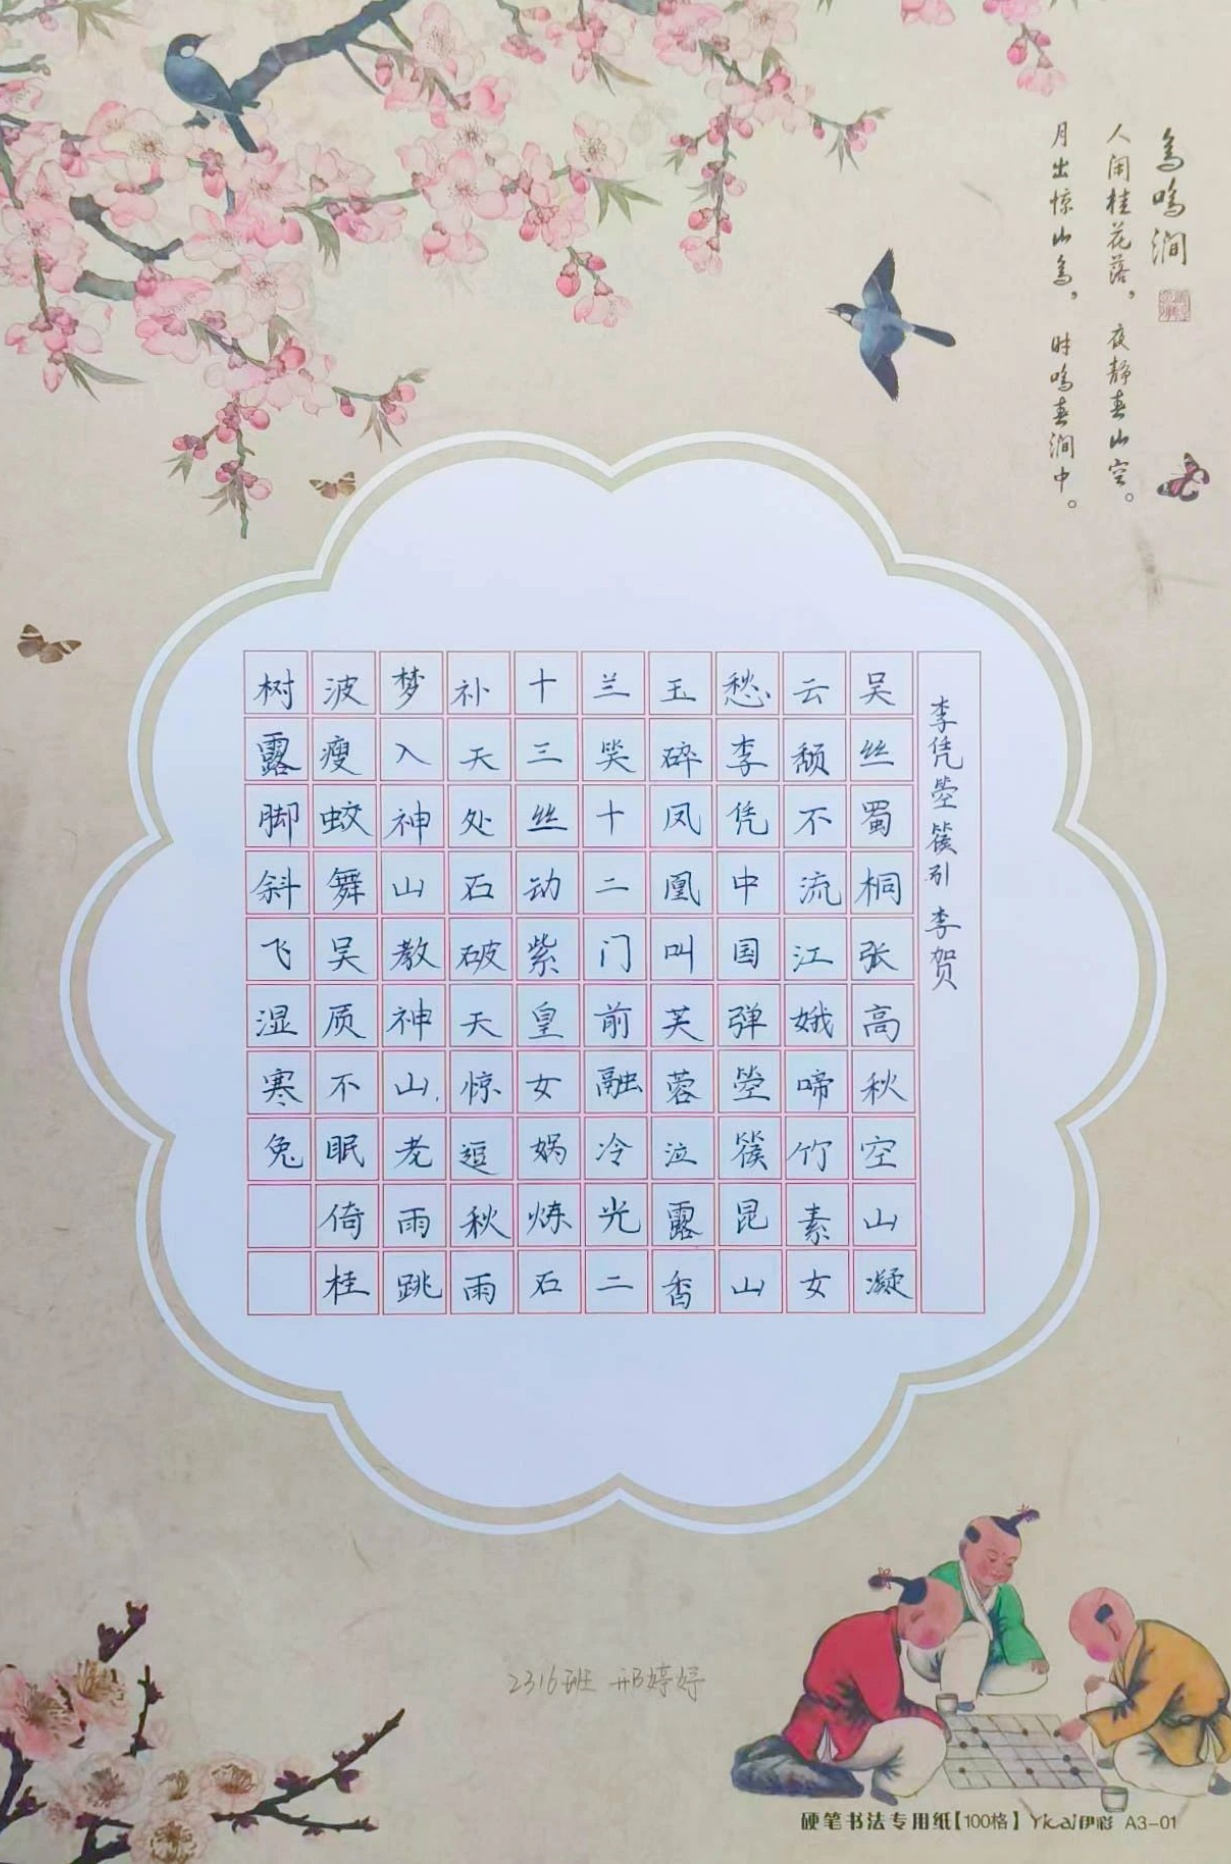 鸟鸣涧
人闲桂花落，夜静春山空。
月出惊山鸟，时鸣春涧中。
李凭箜篌引 李贺
吴丝蜀桐张高秋空山凝
云颓不流江娥啼竹素女
愁李凭中国弹箜篌昆山
玉碎凤凰叫芙蓉泣露香
兰笑十二门前融冷光二
十三丝动紫皇女娲炼石
补天处石破天惊逗秋雨
梦入神山教神山老雨跳
波瘦蛟舞吴质不眠倚桂
树露脚斜飞湿寒兔
2316班 邢婷婷
硬笔书法专用纸【100格】 Yicai伊彩 A3-01